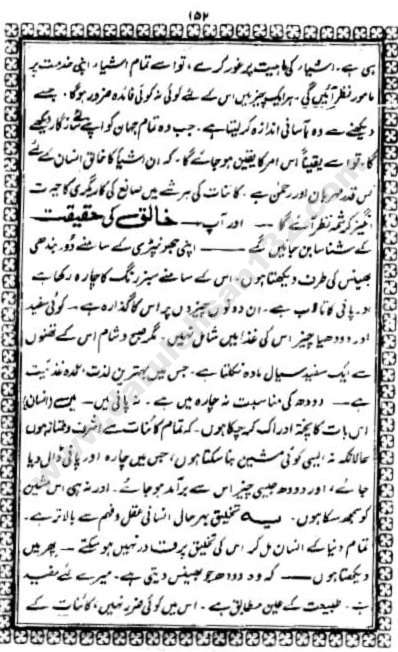 ۱۵۲
ہی ہے۔ اشیاء کی ماہیت پر غور کرے، تو اسے تمام اشیاء اپنی خدمت پر
مامور نظر آئیں گی۔ ہر ایک چیز میں اس کے لئے کوئی نہ کوئی فائدہ ضرور ہوگا۔ جسے
دیکھنے سے وہ بآسانی اندازہ کر لیتا ہے۔ جب وہ تمام جہان کو اپنے لئے سازگار دیکھے
گا، تو اسے یقیناً اس امر کا یقین ہو جائے گا۔ کہ ان اشیا کا خالق انسان کے لئے
کس قدر مہربان اور رحمٰن ہے۔ کائنات کی ہر شے میں صانع کی کاریگری کا حیرت
انگیز کرشمہ نظر آئے گا۔ اور آپ ـــ خالق کی حقیقت
کے شناسا بن جائیں گے ـــ اپنی جھونپڑی کے سامنے ڈور بندھی
بھینس کی طرف دیکھتا ہوں۔ اس کے سامنے سبز رنگ کا چارہ رکھا ہے
اور پانی کا تالاب ہے۔ ان دونوں چیزوں پر اس کا گذارہ ہے۔ کوئی سفید
اور دودھیا چیز اس کی غذا میں شامل نہیں۔ مگر صبح و شام اس کے تھنوں
سے ایک سفید سیال مادہ نکلتا ہے۔ جس میں بہترین لذت، عمدہ غذائیت
ہے ـــ دودھ کی مناسبت نہ چارہ میں ہے۔ نہ پانی میں ـــ میں (انسان)
اس بات کا پختہ ادراک کر چکا ہوں۔ کہ تمام کائنات سے اشرف و ممتاز ہوں
حالانکہ نہ ایسی کوئی مشین بنا سکتا ہوں، جس میں چارہ اور پانی ڈال دیا
جائے، اور دودھ جیسی چیز اس سے برآمد ہو جائے۔ اور نہ ہی اس مشین
کو سمجھ سکا ہوں۔ یہ تخلیق بہر حال انسانی عقل و فہم سے بالاتر ہے۔
تمام دنیا کے انسان مل کر اس کی تخلیق پر قادر نہیں ہو سکتے ـــ پھر میں
دیکھتا ہوں ـــ کہ وہ دودھ جو بھینس دیتی ہے۔ میرے لئے مفید
ہے۔ طبیعت کے عین مطابق ہے۔ اس میں کوئی ضرر نہیں، کائنات کے